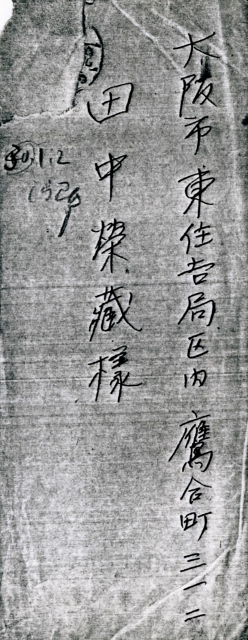 大阪市東住吉局区内鷹合町三一二
田中榮藏様
30.1.2